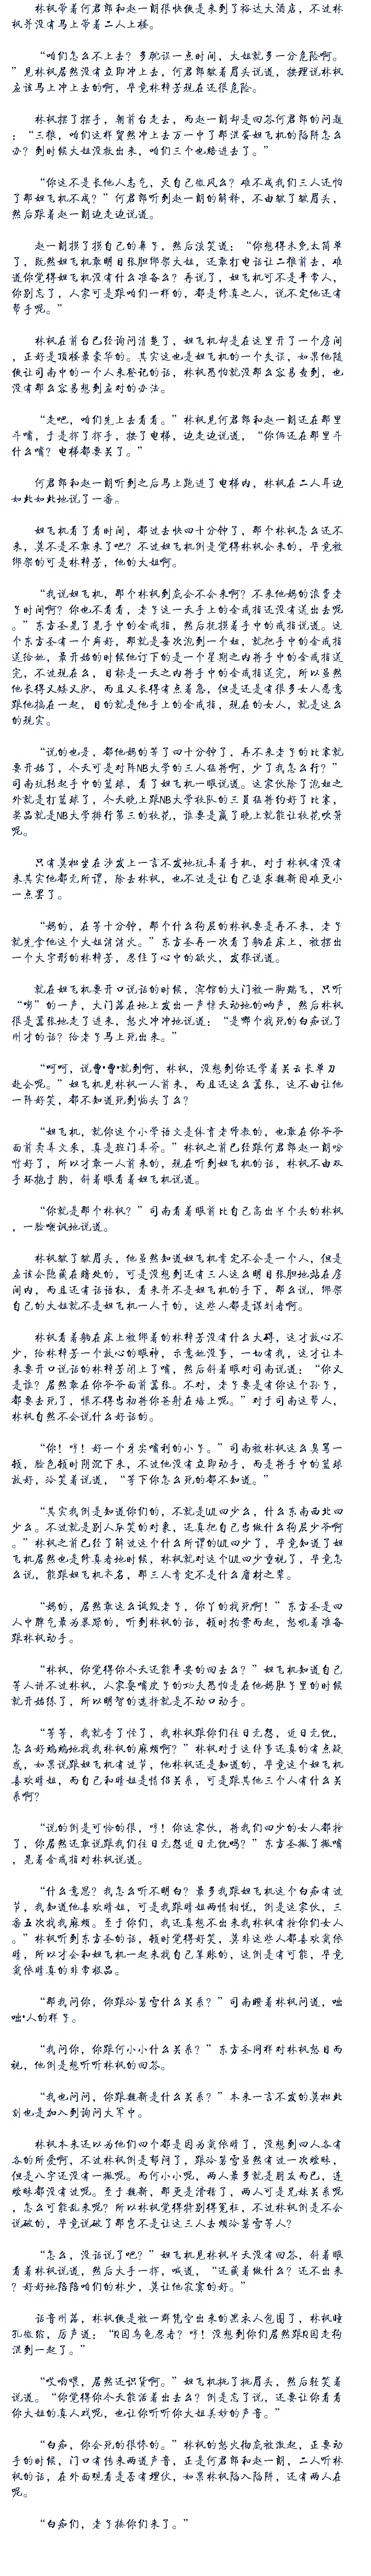 林枫带着何君郎和赵一朗很快便是来到了裕达大酒店，不过林
枫并没有马上带着二人上楼。
“咱们怎么不上去？多耽误一点时间，大姐就多一分危险啊。
”见林枫居然没有立即冲上去，何君郎皱着眉头说道，按理说林枫
应该马上冲上去的啊，毕竟林梓芳现在还很危险。
林枫摆了摆手，朝前台走去，而赵一朗却是回答何君郎的问题
：“三狼，咱们这样贸然冲上去万一中了那混蛋妲飞机的陷阱怎么
办？到时候大姐没救出来，咱们三个也赔进去了。”
“你这不是长他人志气，灭自己微风么？难不成我们三人还怕
了那妲飞机不成？”何君郎听到赵一朗的解释，不由皱了皱眉头，
然后跟着赵一朗边走边说道。
赵一朗摸了摸自己的鼻子，然后淡笑道：“你想得未免太简单
了，既然妲飞机敢明目张胆绑架大姐，还敢打电话让二狼前去，难
道你觉得妲飞机没有什么准备么？再说了，妲飞机可不是平常人，
你别忘了，人家可是跟咱们一样的，都是修真之人，说不定他还有
帮手呢。”
林枫在前台已经询问清楚了，妲飞机却是在这里开了一个房间
，正好是顶楼最豪华的。其实这也是妲飞机的一个失误，如果他随
便让司南中的一个人来登记的话，林枫恐怕就没那么容易查到，也
没有那么容易想到应对的办法。
“走吧，咱们先上去看看。”林枫见何君郎和赵一朗还在那里
斗嘴，于是挥了挥手，按了电梯，边走边说道，“你俩还在那里斗
什么嘴？电梯都要关了。”
何君郎和赵一朗听到之后马上跑进了电梯内，林枫在二人耳边
如此如此地说了一番。
妲飞机看了看时间，都过去快四十分钟了，那个林枫怎么还不
来，莫不是不敢来了吧？不过妲飞机倒是觉得林枫会来的，毕竟被
绑架的可是林梓芳，他的大姐啊。
“我说妲飞机，那个林枫到底会不会来啊？不来他妈的浪费老
子时间啊？你也不看看，老子这一天手上的金戒指还没有送出去呢
。”东方圣晃了晃手中的金戒指，然后抚摸着手中的戒指说道。这
个东方圣有一个癖好，那就是每次泡到一个妞，就把手中的金戒指
送给她，最开始的时候他订下的是一个星期之内将手中的金戒指送
完，不过现在么，目标是一天之内将手中的金戒指送完，所以虽然
他长得又矮又肥，而且又长得有点着急，但是还是有很多女人愿意
跟他搞在一起，目的就是他手上的金戒指，现在的女人，就是这么
的现实。
“说的也是，都他妈的等了四十分钟了，再不来老子的比赛就
要开始了，今天可是对阵NB大学的三人猛将啊，少了我怎么行？”
司南玩转起手中的篮球，看了妲飞机一眼说道。这家伙除了泡妞之
外就是打篮球了，今天晚上跟NB大学校队的三员猛将约好了比赛，
奖品就是NB大学排行第三的校花，谁要是赢了晚上就能让校花吹箫
呢。
只有莫松坐在沙发上一言不发地玩弄着手机，对于林枫有没有
来其实他都无所谓，除去林枫，也不过是让自己追求魏新困难更小
一点罢了。
“妈的，在等十分钟，那个什么狗屁的林枫要是再不来，老子
就先拿他这个大姐消消火。”东方圣再一次看了躺在床上，被摆出
一个大字形的林梓芳，忍住了心中的欲火，发狠说道。
就在妲飞机要开口说话的时候，宾馆的大门被一脚踹飞，只听
“嘭”的一声，大门落在地上发出一声惊天动地的响声，然后林枫
很是嚣张地走了进来，怒火冲冲地说道：“是哪个找死的白痴说了
刚才的话？给老子马上死出来。”
“呵呵，说曹·曹·就到啊，林枫，没想到你还学着关云长单刀
赴会呢。”妲飞机见林枫一人前来，而且还这么嚣张，这不由让他
一阵好笑，都不知道死到临头了么？
“妲飞机，就你这个小学语文是体育老师教的，也敢在你爷爷
面前卖弄文采，真是班门弄斧。”林枫之前已经跟何君郎赵一朗吩
咐好了，所以才敢一人前来的，现在听到妲飞机的话，林枫不由双
手环抱于胸，斜着眼看着妲飞机说道。
“你就是那个林枫？”司南看着眼前比自己高出半个头的林枫
，一脸嘲讽地说道。
林枫皱了皱眉头，他虽然知道妲飞机肯定不会是一个人，但是
应该会隐藏在暗处的，可是没想到还有三人这么明目张胆地站在房
间内，而且还有话语权，看来并不是妲飞机的手下，那么说，绑架
自己的大姐就不是妲飞机一人干的，这些人都是谋划者啊。
林枫看着躺在床上被绑着的林梓芳没有什么大碍，这才放心不
少，给林梓芳一个放心的眼神，示意她没事，一切有我，这才让本
来要开口说话的林梓芳闭上了嘴，然后斜着眼对司南说道：“你又
是谁？居然敢在你爷爷面前嚣张。不对，老子要是有你这个孙子，
都要去死了，恨不得当初将你爸射在墙上呢。”对于司南这帮人，
林枫自然不会说什么好话的。
“你！哼！好一个牙尖嘴利的小子。”司南被林枫这么臭骂一
顿，脸色顿时阴沉下来，不过他没有立即动手，而是将手中的篮球
放好，冷笑着说道，“等下你怎么死的都不知道。”
“其实我倒是知道你们的，不就是WL四少么，什么东南西北四
少么。不过就是别人玩笑的对象，还真把自己当做什么狗屁少爷啊
。”林枫之前已经了解过这个什么所谓的WL四少了，毕竟知道了妲
飞机居然也是修真者地时候，林枫就对这个WL四少重视了，毕竟怎
么说，能跟妲飞机齐名，那三人肯定不是什么庸材之辈。
“妈的，居然敢这么诋毁老子，你丫的找死啊！”东方圣是四
人中脾气最为暴躁的，听到林枫的话，顿时拍案而起，怒吼着准备
跟林枫动手。
“林枫，你觉得你今天还能平安的回去么？”妲飞机知道自己
等人讲不过林枫，人家耍嘴皮子的功夫恐怕是在他妈肚子里的时候
就开始练了，所以明智的选择就是不动口动手。
“等等，我就奇了怪了，我林枫跟你们往日无怨，近日无仇，
怎么好端端地找我林枫的麻烦啊？”林枫对于这件事还真的有点疑
惑，如果说跟妲飞机有过节，他林枫还是知道的，毕竟这个妲飞机
喜欢晴姐，而自己和晴姐是情侣关系，可是跟其他三个人有什么关
系啊？
“说的倒是可怜的很，哼！你这家伙，将我们四少的女人都抢
了，你居然还敢说跟我们往日无怨近日无仇吗？”东方圣撇了撇嘴
，晃着金戒指对林枫说道。
“什么意思？我怎么听不明白？最多我跟妲飞机这个白痴有过
节，我知道他喜欢晴姐，可是我跟晴姐两情相悦，倒是这家伙，三
番五次找我麻烦。至于你们，我还真想不出来我林枫有抢你们女人
。”林枫听到东方圣的话，顿时觉得好笑，莫非这些人都喜欢戴依
晴，所以才会和妲飞机一起来找自己算账的，这倒是有可能，毕竟
戴依晴真的非常极品。
“那我问你，你跟冷若雪什么关系？”司南瞪着林枫问道，咄
咄·人的样子。
“我问你，你跟何小小什么关系？”东方圣同样对林枫怒目而
视，他倒是想听听林枫的回答。
“我也问问，你跟魏新是什么关系？”本来一言不发的莫松此
刻也是加入到询问大军中。
林枫本来还以为他们四个都是因为戴依晴了，没想到四人各有
各的所爱啊，不过林枫倒是郁闷了，跟冷若雪虽然有过一次暧昧，
但是八字还没有一撇呢。而何小小呢，两人最多就是朋友而已，连
暧昧都没有过呢。至于魏新，那更是滑稽了，两人可是兄妹关系呢
，怎么可能乱来呢？所以林枫觉得特别得冤枉，不过林枫倒是不会
说破的，毕竟说破了那岂不是让这三人去烦冷若雪等人？
“怎么，没话说了吧？”妲飞机见林枫半天没有回答，斜着眼
看着林枫说道，然后大手一挥，喊道，“还藏着做什么？还不出来
？好好地陪陪咱们的林少，莫让他寂寞的好。”
话音刚落，林枫便是被一群凭空出来的黑衣人包围了，林枫瞳
孔微缩，厉声道：“R国乌龟忍者？哼！没想到你们居然跟R国走狗
混到一起了。”
“哎哟喂，居然还识货啊。”妲飞机挑了挑眉头，然后轻笑着
说道。“你觉得你今天能活着出去么？倒是忘了说，还要让你看看
你大姐的真人戏呢，也让你听听你大姐美妙的声音。”
“白痴，你会死的很惨的。”林枫的怒火彻底被激起，正要动
手的时候，门口有传来两道声音，正是何君郎和赵一朗，二人听林
枫的话，在外面观看是否有埋伏，如果林枫陷入陷阱，还有两人在
呢。
“白痴们，老子揍你们来了。”